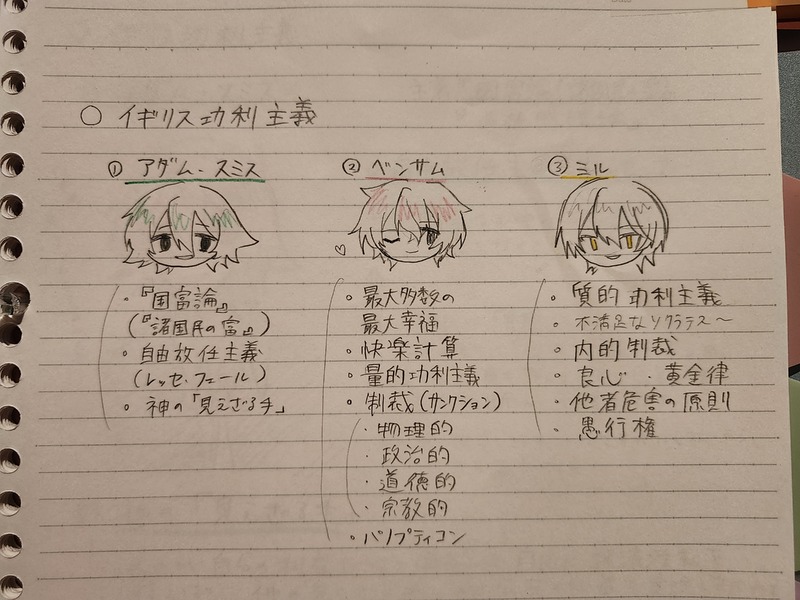 ○ イギリス功利主義
① アダム・スミス
・『国富論』
(『諸国民の富』)
・自由放任主義
(レッセ・フェール)
・神の「見えざる手」
② ベンサム
・最大多数の
最大幸福
・快楽計算
・量的功利主義
・制裁(サンクション)
・物理的
・政治的
・道徳的
・宗教的
・パノプティコン
③ ミル
・質的功利主義
・不満足なソクラテス〜
・内的制裁
・良心・黄金律
・他者危害の原則
・愚行権